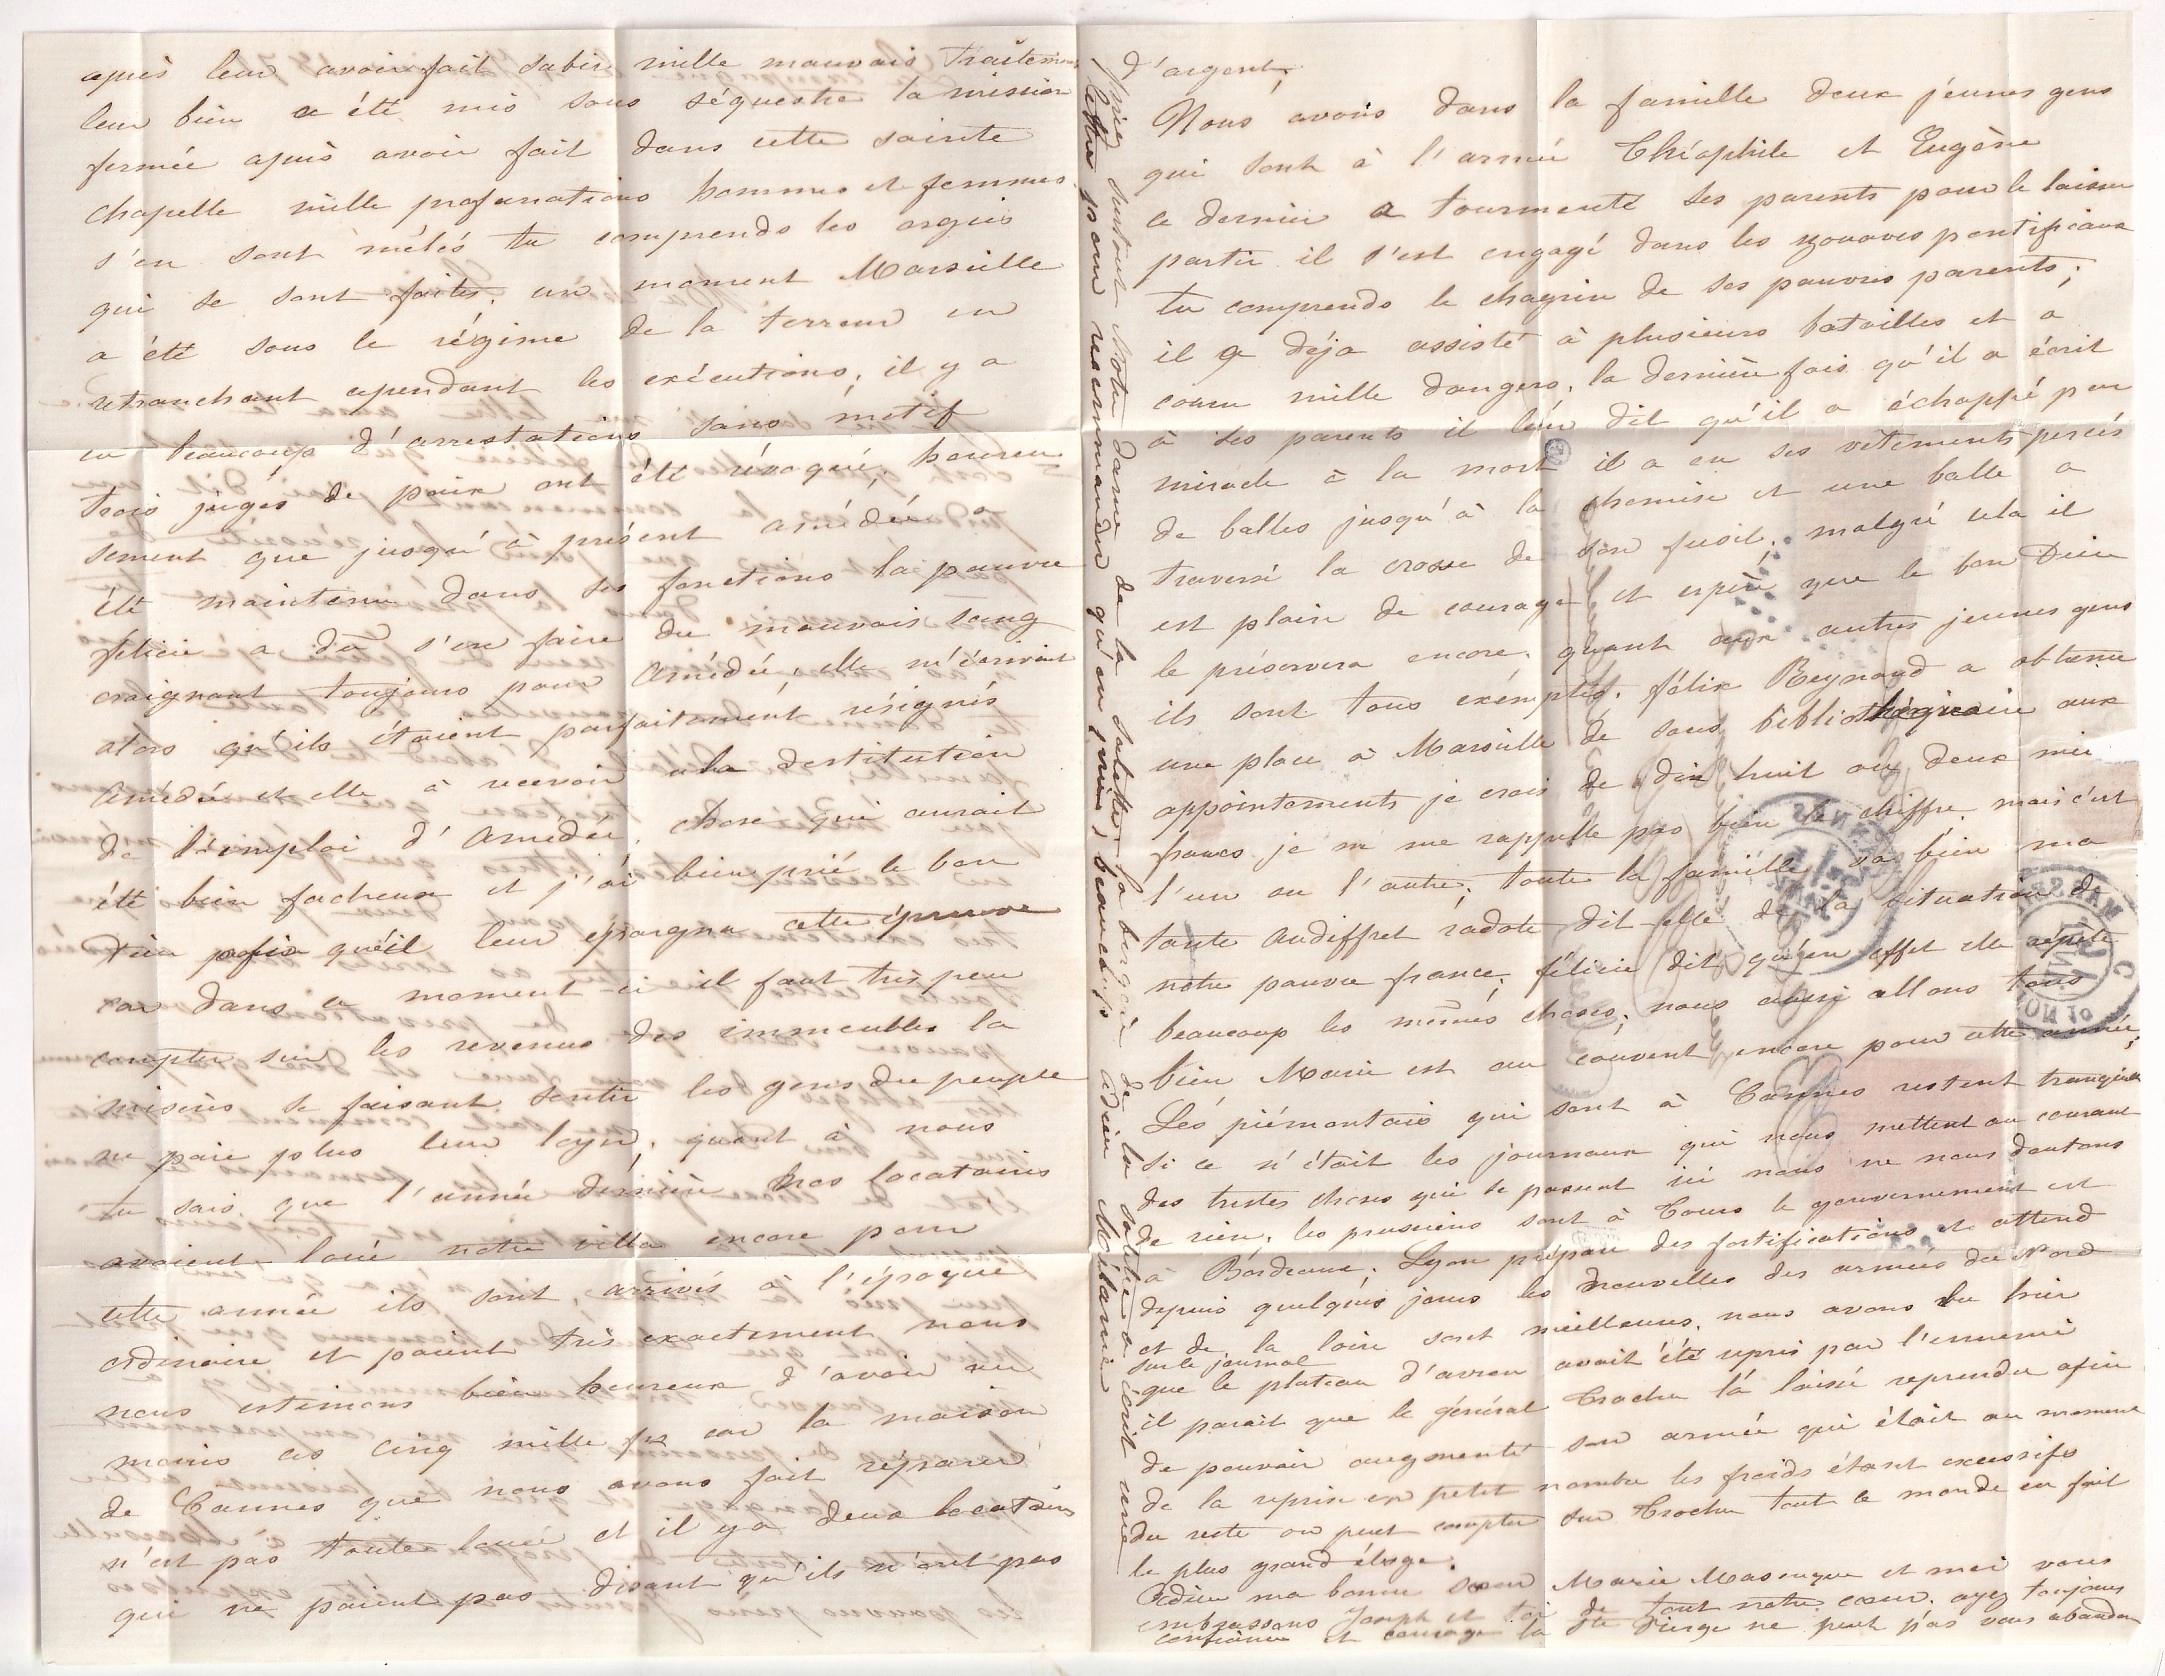 après leur avoir fait subir mille mauvais traitements
leur bien a été mis sous séquestre la mission
fermée après avoir fait dans cette sainte
chapelle mille profanations hommes et femmes
s'en sont mélés tu comprends les orgies
qui se sont faites, un moment Marseille
a été sous le régime de la terreur en
retranchant cependant les exécutions, il y a
eu beaucoup d'arrestations sans motif
trois juges de paix ont été révoqué, heureu
sement que jusqu'à présent amédée a
été maintenu dans ses fonctions la pauvre
félicie a dû s'en faire du mauvais sang
craignant toujours pour amédée, elle m'écrivait
alors qu'ils étaient parfaitement résignés
amédée et elle à recevoir la destitution
de l'emploi d'amédée, chose qui aurait
été bien facheux et j'ai bien prié le bon
Dieu qu'il leur épargna cette épreuve
car dans ce moment-ci il faut très peu
compter sur les revenus des immeubles la
misères se faisant sentir les gens du peuple
ne paie plus leur loyer, quant à nous
tu sais que l'année dernière nos locataires
avaient loué notre villa encore pour
cette année ils sont arrivés à l'époque
ordinaire et paient très exactement nous
nous estimons bien heureux d'avoir au
moins ces cinq mille fr car la maison
de Cannes que nous avons fait réparer
n'est pas toute louée et il y a deux locataires
qui ne paient pas disant qu'ils n'ont pas
d'argent.
Nous avons dans la famille deux jeunes gens
qui sont à l'armée Théophile et Eugène
ce dernier a tourmenté ses parents pour le laisser
partir il s'est engagé dans les zouaves pontificaux
tu comprends le chagrin de ses pauvres parents;
il a déja assisté à plusieurs batailles et a
couru mille dangers, la dernière fois qu'il a écrit
à ses parents il leur dit qu'il a échappé par
miracle à la mort il a eu ses vêtements percés
de balles jusqu'à la chemise et une balle a
traversé la crosse de son fusil, malgré cela il
est plein de courage et espère que le bon Dieu
le préservera encore, quant aux autres jeunes gens
ils sont tous exemptés, félix Reynaud a obtenu
une place à Marseille de sous bibliothéquaire aux
appointements je crois de dix huit ou deux mille
francs je ne me rappelle pas bien le chiffre, mais c'est
l'un ou l'autre; toute la famille va bien ma
tante audiffret radote dit-elle de la situation de
notre pauvre france; félicie dit qu'en effet elle répète
beaucoup les mêmes choses, nous aussi allons tous
bien Marie est au couvent encore pour cette année;
Les piémontais qui sont à Cannes restent tranquilles
si ce n'était les journaux qui nous mettent au courant
des tristes choses qui se passent ici nous ne nous doutons
de rien, les prussiens sont à Tours le gouvernement est
à Bordeaux, Lyon prépare des fortifications et attend
depuis quelques jours les nouvelles des armées du Nord
et de la loire sont meilleures, nous avons lu hier
sur le journal
que le plateau d'avron avait été repris par l'ennemi
il parait que le général Trochu l'a laissé reprendre afin
de pouvoir augmenté son armée qui était au moment
de la reprise en petit nombre les froids étant excessifs
du reste on peut compter sur Trochu tout le monde en fait
le plus grand éloge.
adieu ma bonne sœur Marie et moi vous
embrassons Joseph et toi de tout notre cœur, ayez toujours
confiance et courage la Ste Vierge ne peut pas vous abandon
priez surtout Notre dame de la salette, la bergère de la salette a écrit une
lettre pour recommander qu'on prie, beaucoup adieu Mélanie